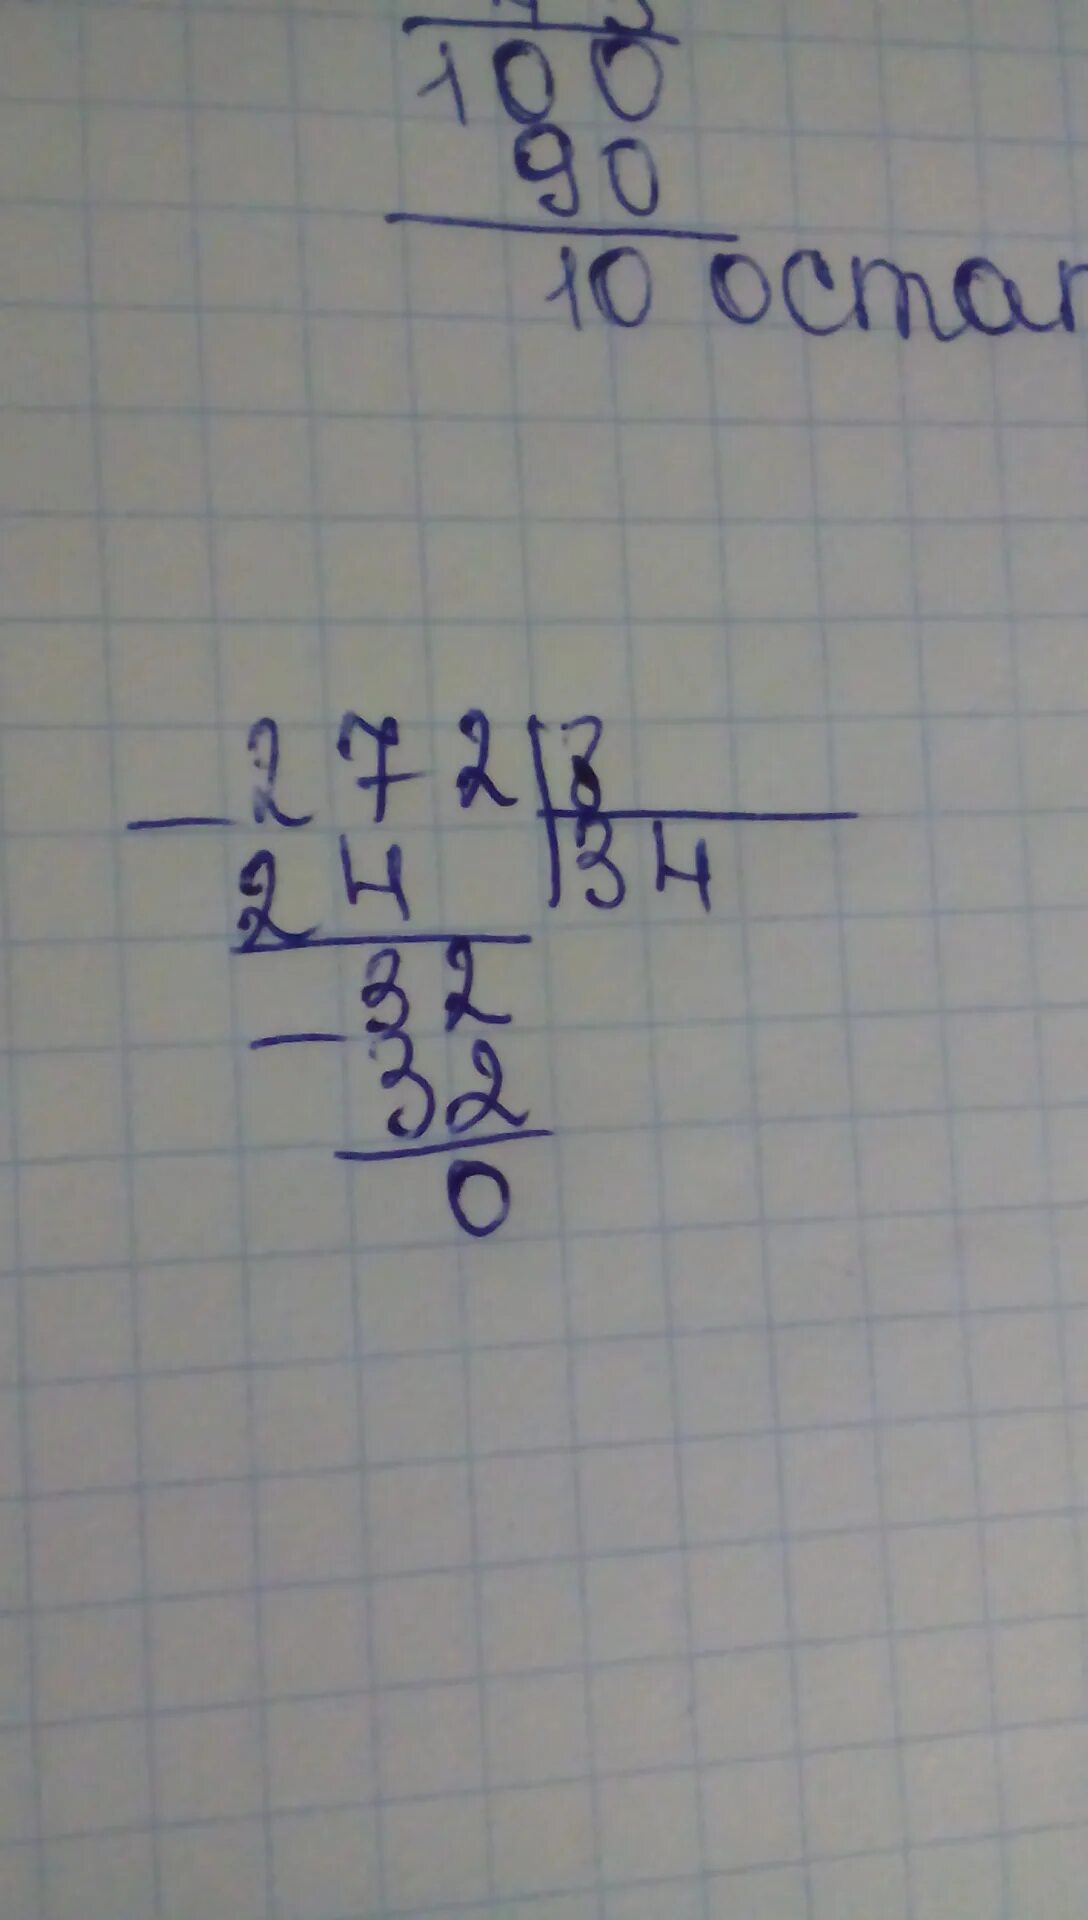 100
90
10 остат
— 2 7 2 | 8
2 4 | 3 4
3 2
— 3 2
0